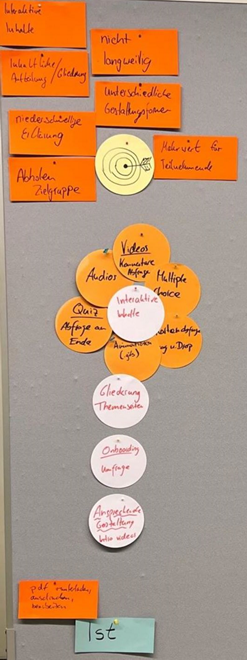 Interaktive
Inhalte
nicht
langweilig
Inhaltliche
Aufteilung/Gliederung
Unterschiedliche
Gestaltungsformen
niederschwellige
Erklärung
Mehrwert für
Teilnehmende
Zielgruppe
Videos
Kommentare
Abfrage
Audios
Multiple
Choice
Interaktive
Inhalte
Quiz
Abfrage am
Ende
Animationen
(gifs)
Gliederung
Themenseiten
Onboarding
Umfrage
Ansprechende
Gestaltung
pdf runterladen,
ausdrucken,
bearbeiten
Ist